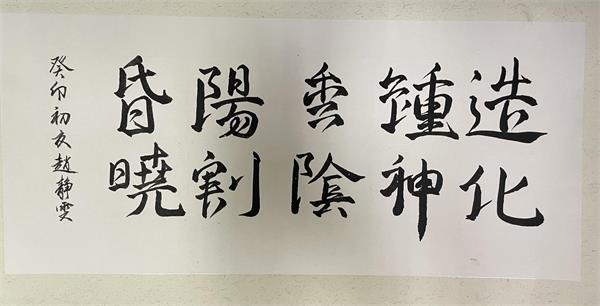 造化
鍾神
秀陰
陽割
昏曉
癸卯初夏趙靜雯